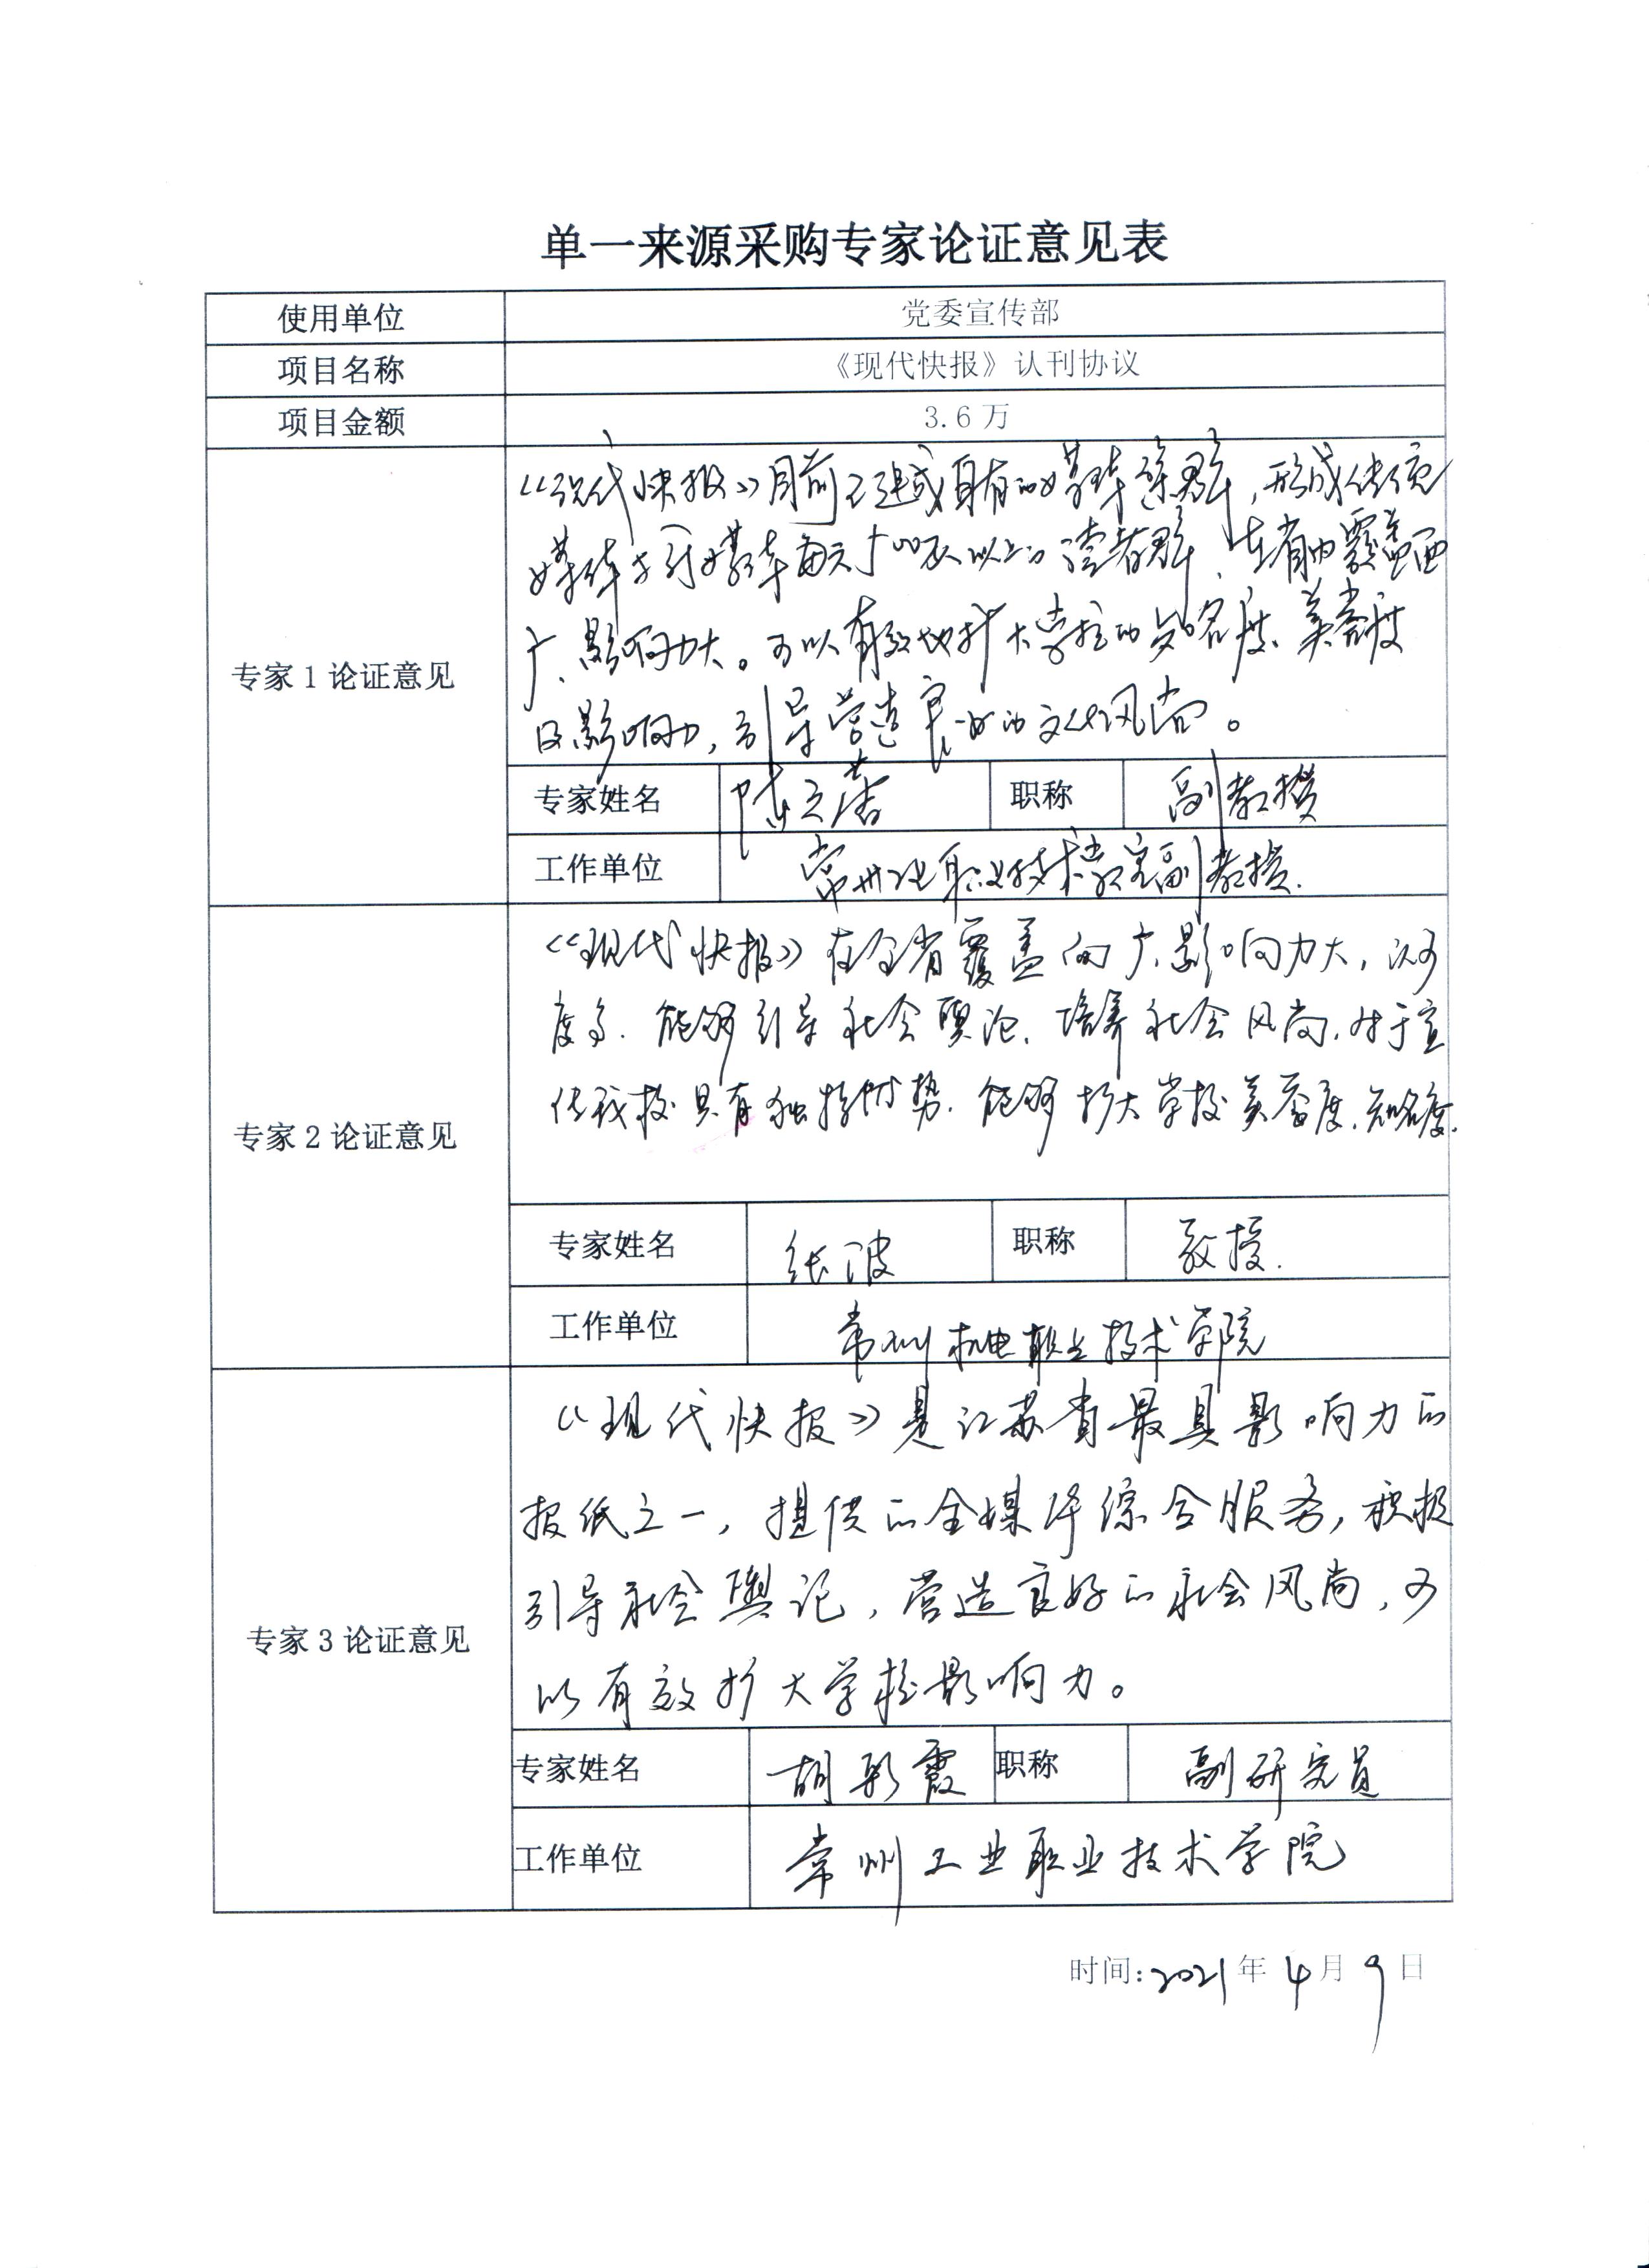 单一来源采购专家论证意见表
使用单位 党委宣传部
项目名称 《现代快报》认刊协议
项目金额 3.6万
专家1论证意见
《现代快报》目前已建成自有的媒体集群，形成传统
媒体与新媒体每天 以上的读者群，在省内覆盖面
广、影响力大。可以有效地扩大学校的知名度、美誉度
及影响力，引导营造良好的文化风尚。
专家姓名 陈 职称 副教授
工作单位 常州 职业技术 副教授.
专家2论证意见
《现代快报》在全省覆盖面广、影响力大，认可
度高.能够引导社会舆论.培养社会风尚.对于宣
传我校具有独特优势.能够扩大学校美誉度.知名度.
专家姓名 张波 职称 教授.
工作单位 常州机电职业技术学院
专家3论证意见
《现代快报》是江苏省最具影响力的
报纸之一，提供的全媒体综合服务，积极
引导社会舆论，营造良好的社会风尚，可
以有效扩大学校影响力。
专家姓名 胡彩霞 职称 副研究员
工作单位 常州工业职业技术学院
时间:2021年4月9日